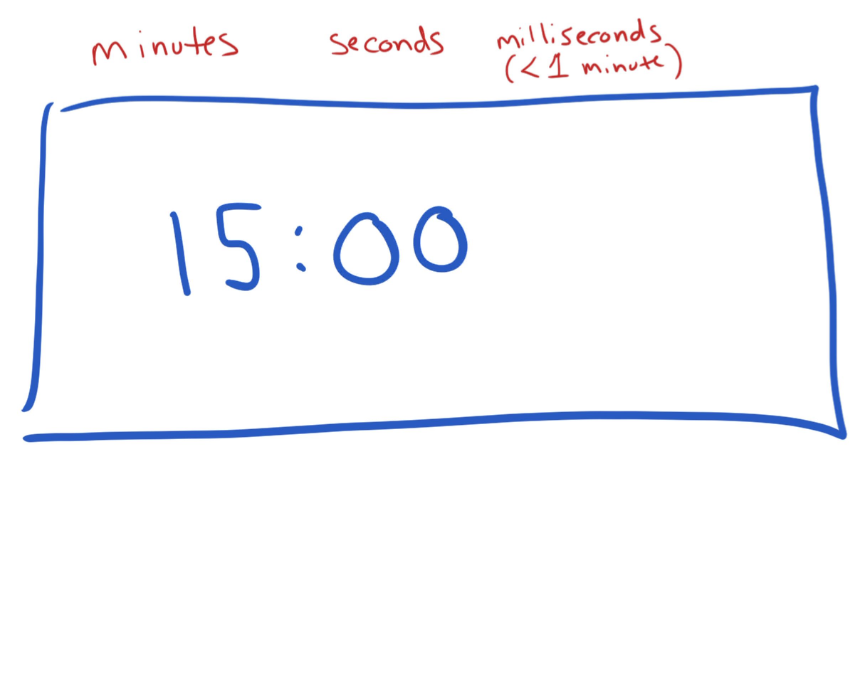 minutes seconds milliseconds
(<1 minute)
15:00